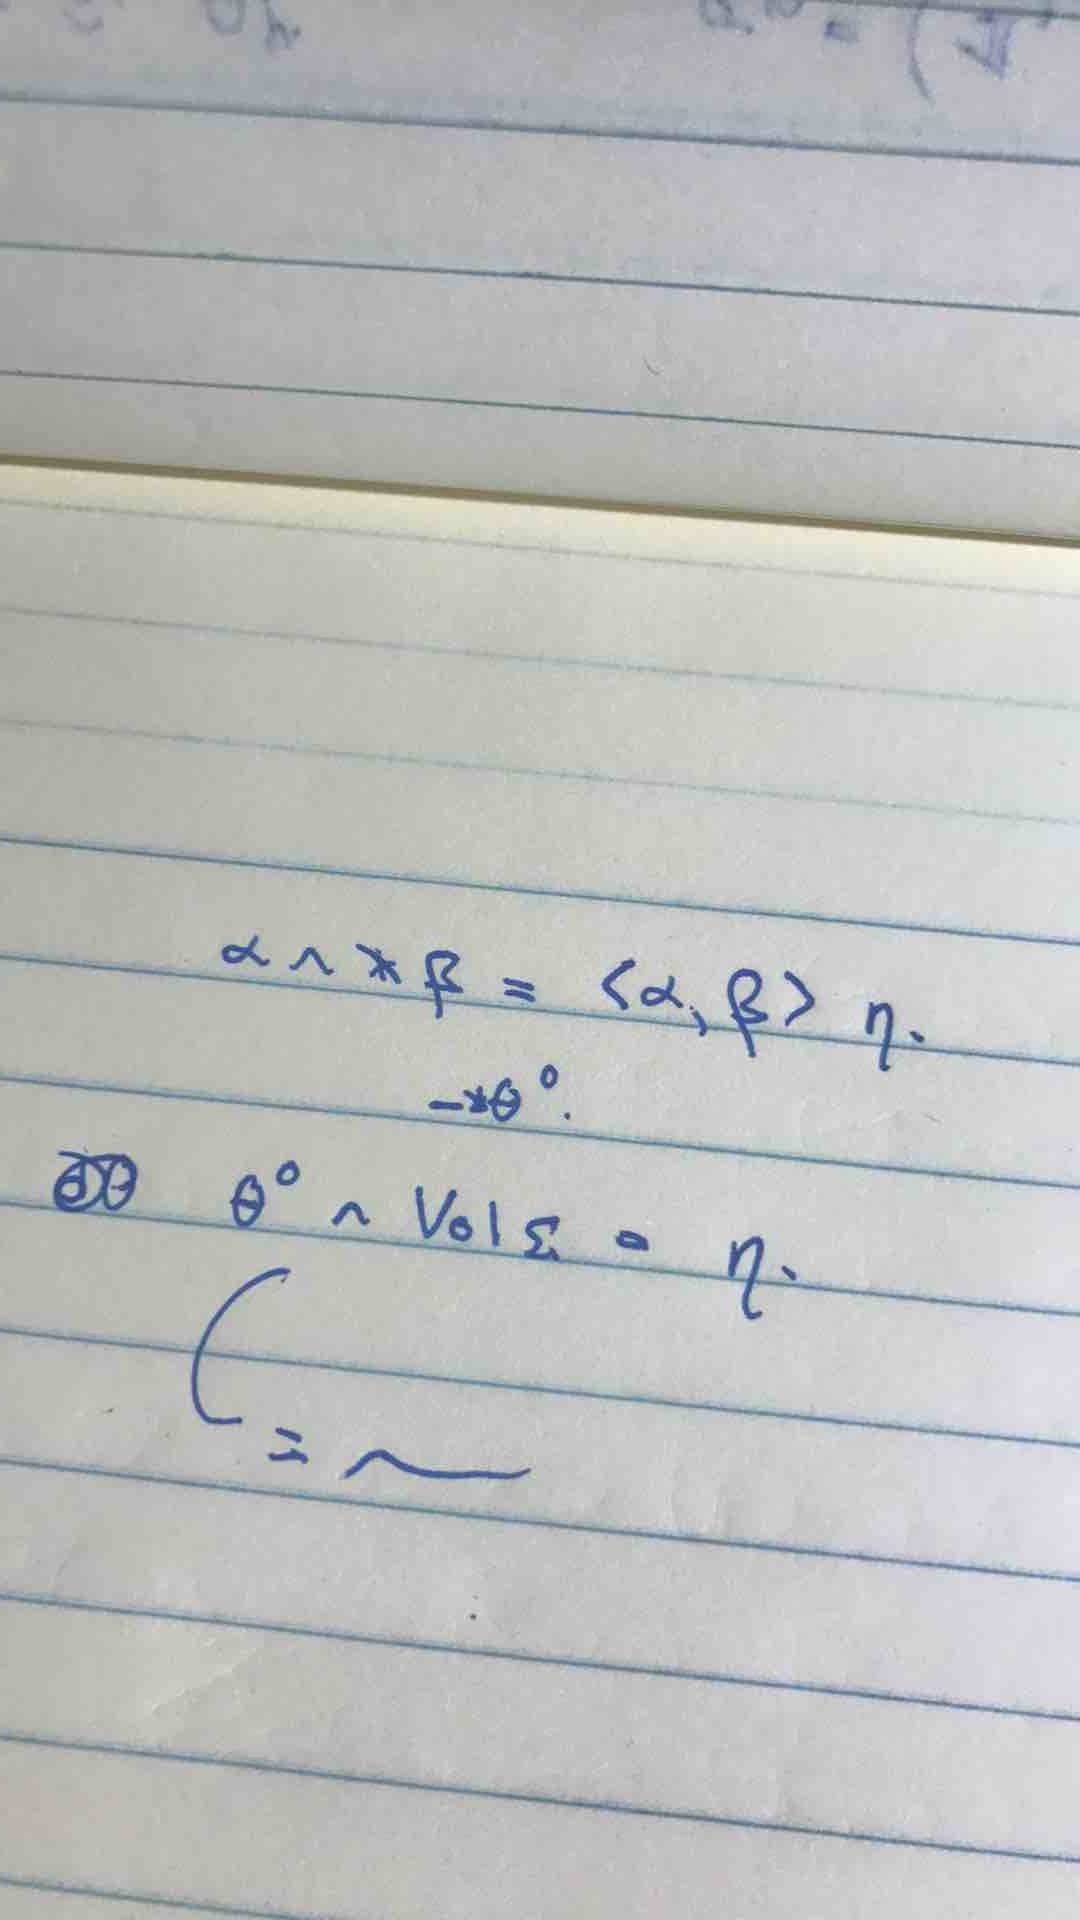 α ∧ * β = <α, β> η.
-*θ⁰.
θ⁰ ∧ Vol Σ = η.
=